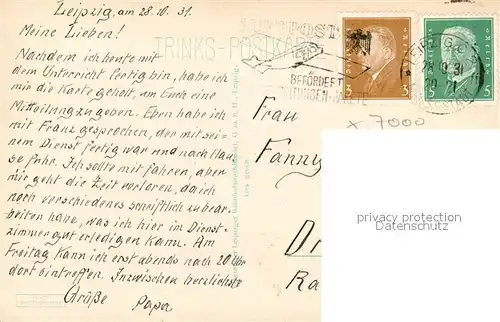 Leipzig, am 28.10.31.
Meine Lieben!
Nachdem ich heute mit
dem Unterricht fertig bin, habe ich
mir die Karte geholt, um Euch eine
Mitteilung zu geben. Eben habe ich
mit Franz gesprochen, der mit sei-
nem Dienst fertig war und nach Hau-
se fuhr. Ich sollte mit fahren, aber
mir geht die Zeit verloren, da ich
noch verschiedenes schriftlich zu bear-
beiten habe, was ich hier im Dienst-
zimmer gut erledigen kann. Am
Freitag kann ich erst abends nach 20 Uhr
dort eintreffen. Inzwischen herzlichste
Grüße Papa
TRINKS-POSTKARTE
POST
BEFÖRDERT
3 3
5 5
x 7000
Frau
Fanny
D
Ra
privacy protection
Datenschutz